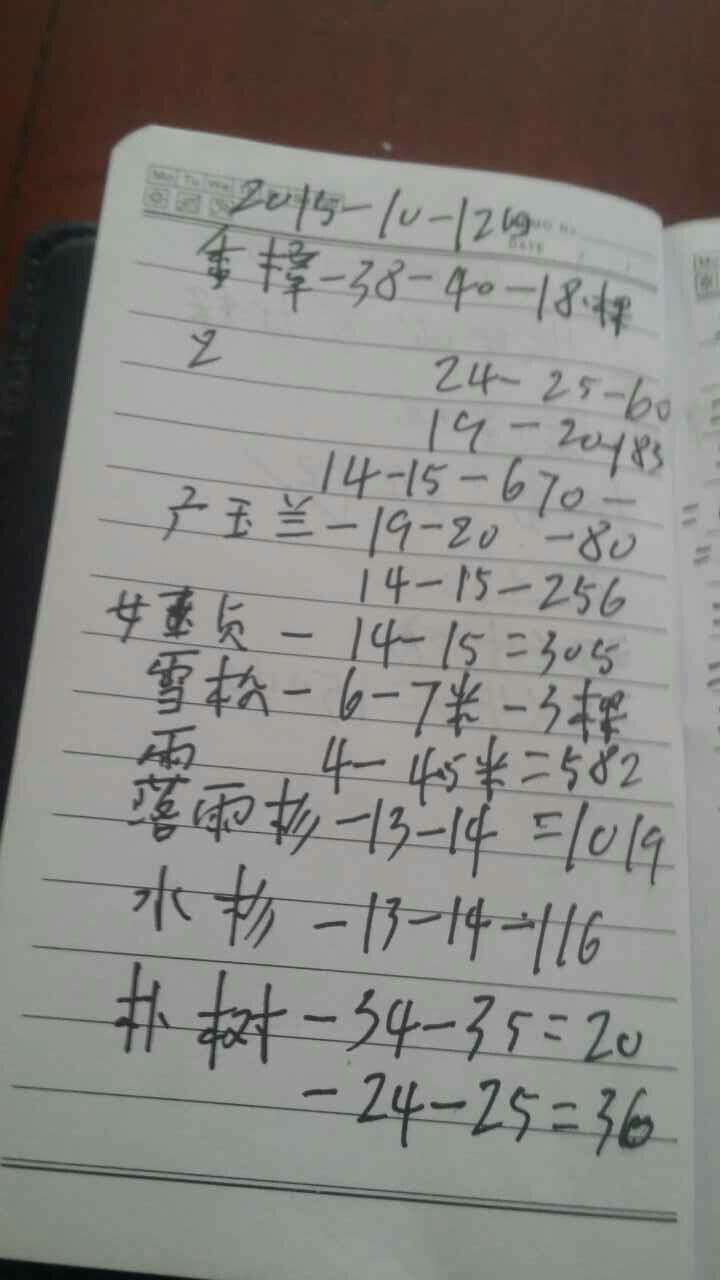 Mo Tu We
2015-10-12日
DATE
香樟-38-40-18棵
24-25-60
19-20-183
14-15-670-
广玉兰-19-20 -80
14-15-256
女贞-14-15=305
雪松-6-7米-3棵
雨 4-4.5米=582
落雨杉-13-14=1019
水杉-13-14-116
朴树-34-35=20
-24-25=36